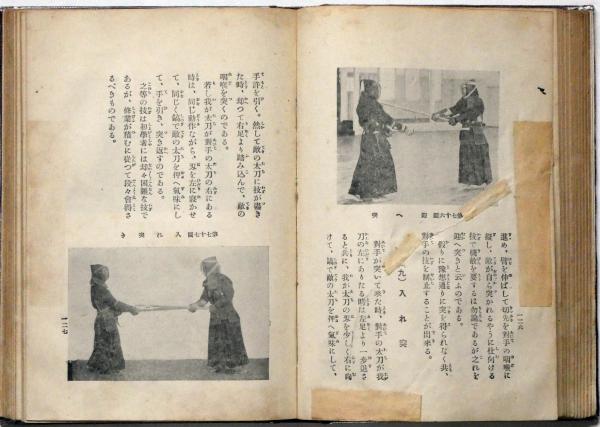 第七十六圖 迎へ突
一二六
進め、臂を伸ばして切先を對手の咽喉に
擬し、敵が自ら突かれるやうに仕向ける
技で機敏を要するは勿論であるが之れを
迎へ突きと云ふのである。
假りに豫想通りに突を得られなく共、
對手の技を制止することが出來る。
(九) 入れ突
對手が突いて來た時、對手の太刀が我
刀の左にありたる時は左足より一步退さ
ると共に、我が太刀の刃を少しく右に向
けて、鎬で敵の太刀を押へ氣味にして、
手許を引く。然して敵の太刀に技が盡き
た時、却つて右足より踏み込んで、敵の
咽喉を突くのである。
若し我が太刀が對手の太刀の右にある
時は、同じ動作ながら、刃を左に寢かせ
て、同じく鎬で敵の太刀を押へ氣味にし
て、手を引き、突き返すのである。
之等の技は初學者には却々困難な技で
あるが、修業が積むに從つて段々會得さ
るべきものである。
第七十七圖 入れ突き
一二七